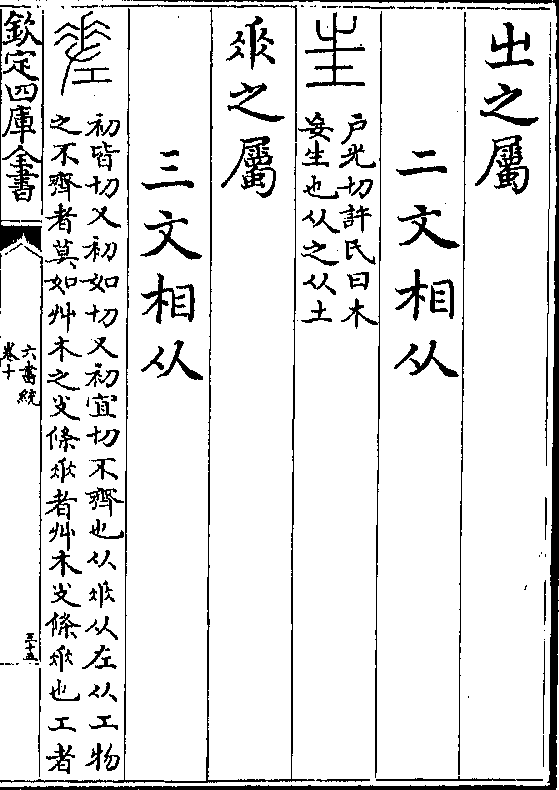 㞢之屬
二文相从
㞷
户光切許氏曰木
妄生也从之从土
𠂹之屬
三文相从
初皆切又初如切又初宜切不齊也从𠂹从左从工物
之不齊者莫如艸木之支條𠂹者艸木支條𠂹也工者
欽定四庫全書
六書統
卷十
三十五